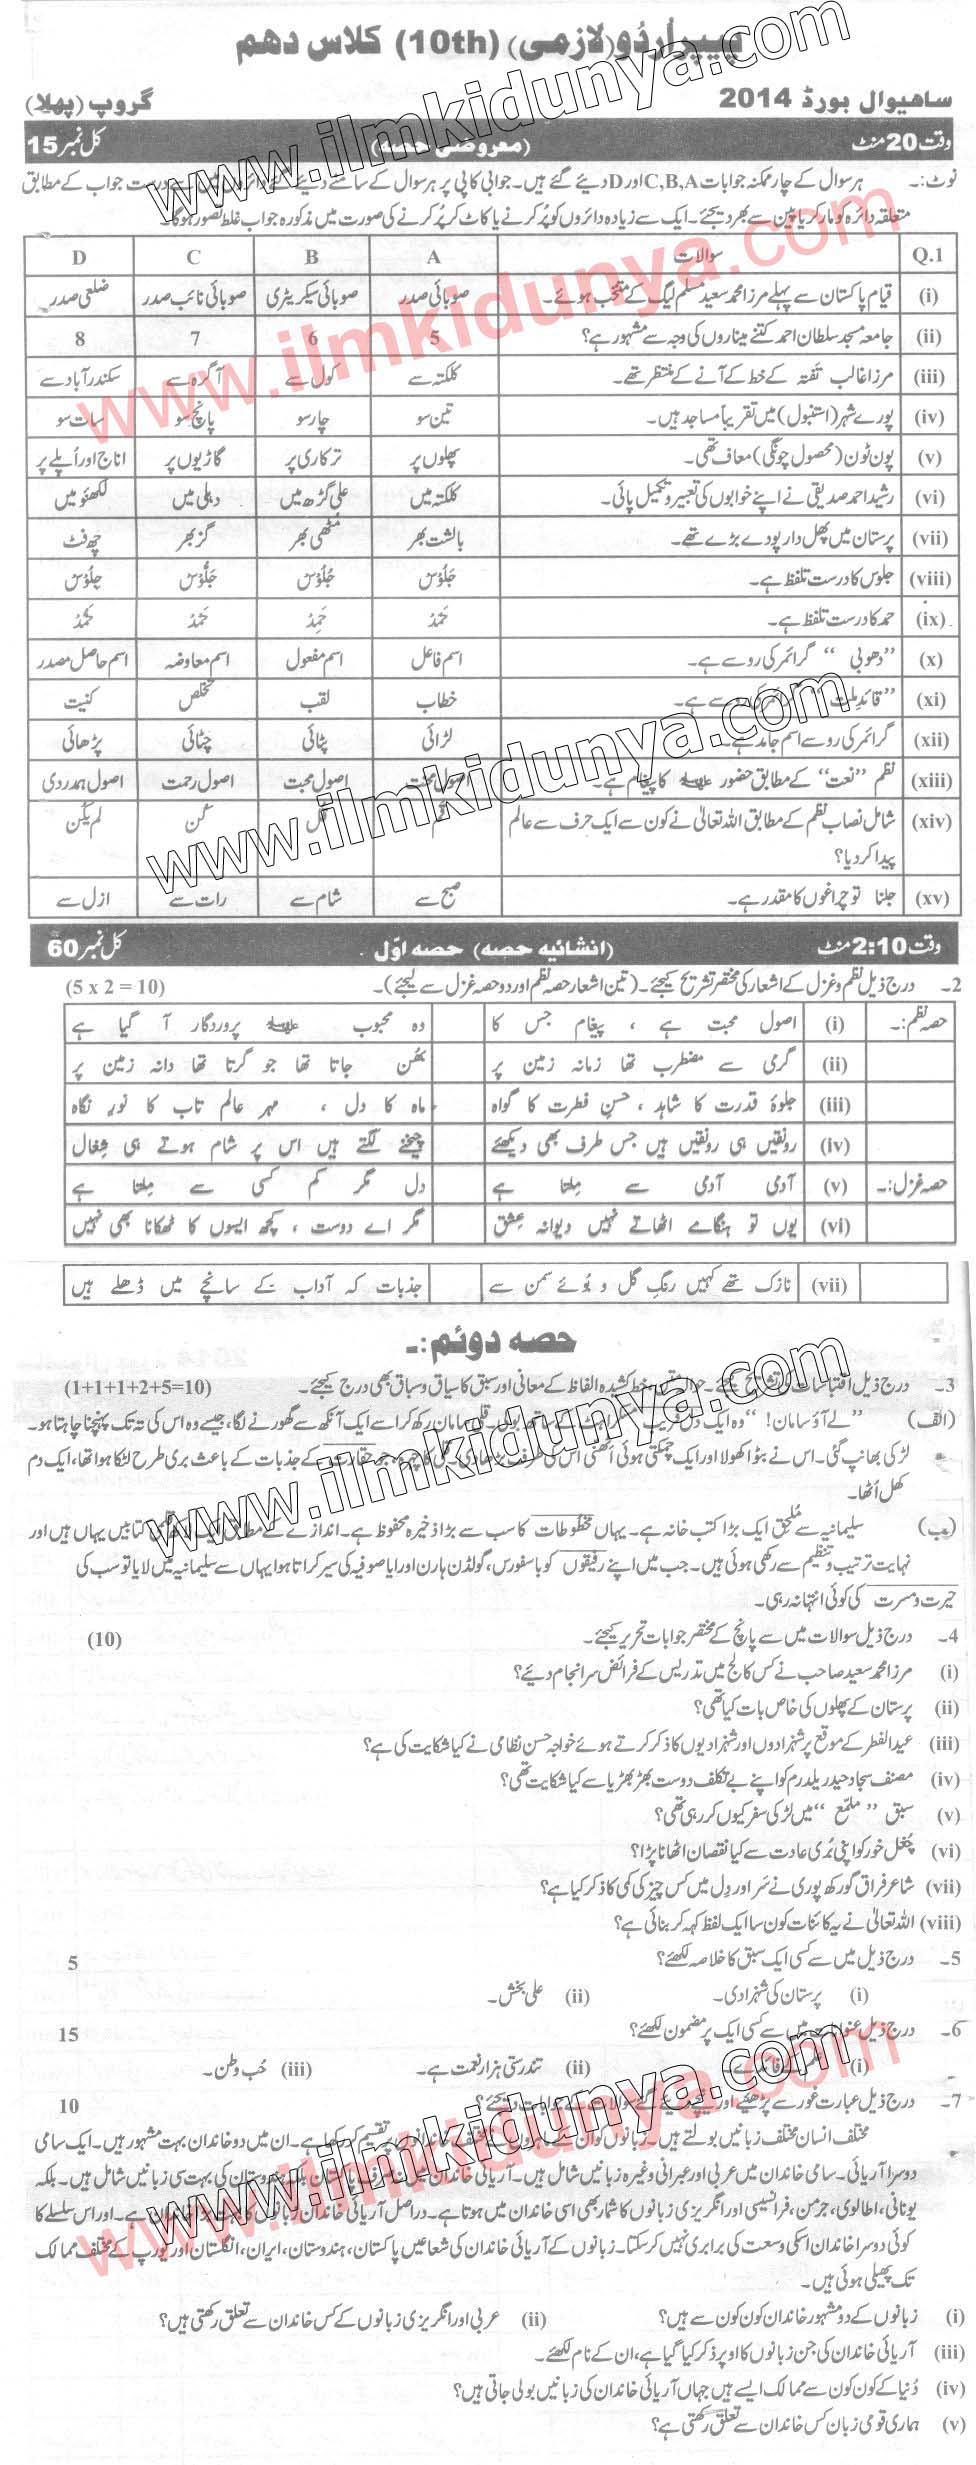 پیپر اُردُو (لازمی) (10th) کلاس دھم
ساھیوال بورڈ 2014 گروپ (پھلا)
وقت 20 منٹ (معروضی حصہ) کل نمبر 15
نوٹ:۔ ہر سوال کے چار ممکنہ جوابات C,B,A اور D دیئے گئے ہیں۔ جوابی کاپی پر ہر سوال کے سامنے دیئے گئے دائروں میں سے درست جواب کے مطابق
متعلقہ دائرہ کو مارکر یا پین سے بھر دیجئے۔ ایک سے زیادہ دائروں کو پُر کرنے یا کاٹ کر پُر کرنے کی صورت میں مذکورہ جواب غلط تصور ہوگا۔
Q.1 سوالات A B C D
(i) قیام پاکستان سے پہلے مرزا محمد سعید مسلم لیگ کے منتخب ہوئے۔ صوبائی صدر صوبائی سیکریٹری صوبائی نائب صدر ضلعی صدر
(ii) جامعہ مسجد سلطان احمد کتنے میناروں کی وجہ سے مشہور ہے؟ 5 6 7 8
(iii) مرزا غالب تفتہ کے خط کے آنے کے منتظر تھے۔ کلکتہ سے کول سے آگرہ سے سکندر آباد سے
(iv) پورے شہر (استنبول) میں تقریباً مساجد ہیں۔ تین سو چار سو پانچ سو سات سو
(v) پون ٹون (محصول چونگی) معاف تھی۔ پھلوں پر ترکاری پر گاڑیوں پر اناج اور اُپلے پر
(vi) رشید احمد صدیقی نے اپنے خوابوں کی تعبیر و تکمیل پائی۔ کلکتہ میں علی گڑھ میں دہلی میں لکھنؤ میں
(vii) پرستان میں پھل دار پودے بڑے تھے۔ بالشت بھر مُٹھی بھر گز بھر چھ فٹ
(viii) جلوس کا درست تلفظ ہے۔ جَلُوس جُلُوس جَلُّوس جِلُوس
(ix) حمد کا درست تلفظ ہے۔
(x) “دھوبی” گرائمر کی رو سے ہے۔ اسم فاعل اسم مفعول اسم معاوضہ اسم حاصل مصدر
(xi) “قائد ملت” کی رو سے ہے۔ خطاب لقب تخلص کنیت
(xii) گرائمر کی رو سے اسم جامد ہے۔ لڑائی پٹائی چٹائی پڑھائی
(xiii) نظم “نعت” کے مطابق حضور ﷺ کا پیغام ہے۔ اصول محنت اصول محبت اصول رحمت اصول ہمدردی
(xiv) شامل نصاب نظم کے مطابق اللہ تعالیٰ نے کون سے ایک حرف سے عالم کُن لم یکن
پیدا کر دیا؟
(xv) جلنا تو چراغوں کا مقدر ہے۔ صبح سے شام سے رات سے ازل سے
وقت 2:10 منٹ (انشائیہ حصہ) حصہ اوّل کل نمبر 60
2۔ درج ذیل نظم و غزل کے اشعار کی مختصر تشریح کیجئے۔ (تین اشعار حصہ نظم اور دو حصہ غزل سے لیجئے)۔ (5 x 2 = 10)
حصہ نظم:۔ (i) اصول محبت ہے ، پیغام جس کا وہ محبوب ﷺ پروردگار آ گیا ہے
(ii) گرمی سے مضطرب تھا زمانہ زمین پر بھُن جاتا تھا جو گرتا تھا دانہ زمین پر
(iii) جلوۂ قدرت کا شاہد ، حسنِ فطرت کا گواہ ماہ کا دل ، مہر عالم تاب کا نورِ نگاہ
(iv) رونقیں ہی رونقیں ہیں جس طرف بھی دیکھئے چیخنے لگتے ہیں اس پر شام ہوتے ہی شِغال
حصہ غزل:۔ (v) آدمی آدمی سے ملتا ہے دل مگر کم کسی سے مِلتا ہے
(vi) یوں تو ہنگامے اٹھاتے نہیں دیوانہ عشق مگر اے دوست ، کچھ ایسوں کا ٹھکانا بھی نہیں
(vii) نازک تھے کہیں رنگِ گل و بُوئے سمن سے جذبات کہ آداب کے سانچے میں ڈھلے ہیں
حصہ دوئم:۔
3۔ درج ذیل اقتباسات کی تشریح کیجئے۔ خط کشیدہ الفاظ کے معانی اور سبق کا سیاق و سباق بھی درج کیجئے۔ (1+1+1+2+5=10)
(الف) “لے آؤ سامان!” وہ ایک دل فریب مسکراہٹ کے ساتھ بولی۔ قلی سامان رکھ کر اسے ایک آنکھ سے گھورنے لگا، جیسے وہ اس کی تہ تک پہنچنا چاہتا ہو۔
لڑکی بھانپ گئی۔ اس نے بٹوا کھولا اور ایک چمکتی ہوئی اٹھنی اس کی طرف بڑھا دی۔ قلی کا چہرہ، جو حقارت کے جذبات کے باعث بری طرح لٹکا ہوا تھا، ایک دم
کھل اُٹھا۔
(ب) سلیمانیہ سے مُلحِق ایک بڑا کتب خانہ ہے۔ یہاں مخطوطات کا سب سے بڑا ذخیرہ محفوظ ہے۔ اندازے کے مطابق ایک لاکھ کتابیں یہاں ہیں اور
نہایت ترتیب و تنظیم سے رکھی ہوئی ہیں۔ جب میں اپنے رفیقوں کو باسفورس، گولڈن ہارن اور ایاصوفیہ کی سیر کراتا ہوا یہاں سے سلیمانیہ میں لایا تو سب کی
حیرت و مسرت کی کوئی انتہا نہ رہی۔
4۔ درج ذیل سوالات میں سے پانچ کے مختصر جوابات تحریر کیجئے۔ (10)
(i) مرزا محمد سعید صاحب نے کس کالج میں تدریس کے فرائض سرانجام دیئے؟
(ii) پرستان کے پھلوں کی خاص بات کیا تھی؟
(iii) عیدالفطر کے موقع پر شہزادوں اور شہزادیوں کا ذکر کرتے ہوئے خواجہ حسن نظامی نے کیا شکایت کی ہے؟
(iv) مصنف سجاد حیدر یلدرم کو اپنے بے تکلف دوست بھڑ بھڑیا سے کیا شکایت تھی؟
(v) سبق “ملمع” میں لڑکی سفر کیوں کر رہی تھی؟
(vi) چُغل خور کو اپنی بُری عادت سے کیا نقصان اٹھانا پڑا؟
(vii) شاعر فراق گورکھ پوری نے سَر اور دِل میں کس چیز کی کمی کا ذکر کیا ہے؟
(viii) اللہ تعالیٰ نے یہ کائنات کون سا ایک لفظ کہہ کر بنائی ہے؟
5۔ درج ذیل میں سے کسی ایک سبق کا خلاصہ لکھئے؟ 5
(i) پرستان کی شہزادی۔ (ii) علی بخش۔
6۔ درج ذیل عنوانات میں سے کسی ایک پر مضمون لکھئے؟ 15
(i) علم کے فائدے۔ (ii) تندرستی ہزار نعمت ہے۔ (iii) حُب وطن۔
7۔ درج ذیل عبارت غور سے پڑھئیے اور نیچے دیئے گئے سوالات کے جوابات دیجئے؟ 10
مختلف انسان مختلف زبانیں بولتے ہیں۔ زبانوں کو ان کے ماہروں نے مختلف خاندانوں میں تقسیم کر رکھا ہے۔ ان میں دو خاندان بہت مشہور ہیں۔ ایک سامی
دوسرا آریائی۔ سامی خاندان میں عربی اور عبرانی وغیرہ زبانیں شامل ہیں۔ آریائی خاندان میں نہ صرف پاکستان بلکہ ہندوستان کی بہت سی زبانیں شامل ہیں۔ بلکہ
یونانی، اطالوی، جرمن، فرانسیسی اور انگریزی زبانوں کا شمار بھی اسی خاندان میں ہوتا ہے۔ دراصل آریائی خاندان زبانوں کا بہت بڑا خاندان ہے۔ اور اس سلسلے کا
کوئی دوسرا خاندان اسکی وسعت کی برابری نہیں کر سکتا۔ زبانوں کے آریائی خاندان کی شعاعیں پاکستان، ہندوستان، ایران، انگلستان اور یورپ کے مختلف ممالک
تک پھیلی ہوئی ہیں۔
(i) زبانوں کے دو مشہور خاندان کون کون سے ہیں؟ (ii) عربی اور انگریزی زبانوں کے کس خاندان سے تعلق رکھتی ہیں؟
(iii) آریائی خاندان کی جن زبانوں کا اوپر ذکر کیا گیا ہے، ان کے نام لکھئے۔
(iv) دُنیا کے کون کون سے ممالک ایسے ہیں جہاں آریائی خاندان کی زبانیں بولی جاتی ہیں؟
(v) ہماری قومی زبان کس خاندان سے تعلق رکھتی ہے؟
www.ilmkidunya.com
www.ilmkidunya.com
www.ilmkidunya.com
www.ilmkidunya.com
www.ilmkidunya.com
www.ilmkidunya.com